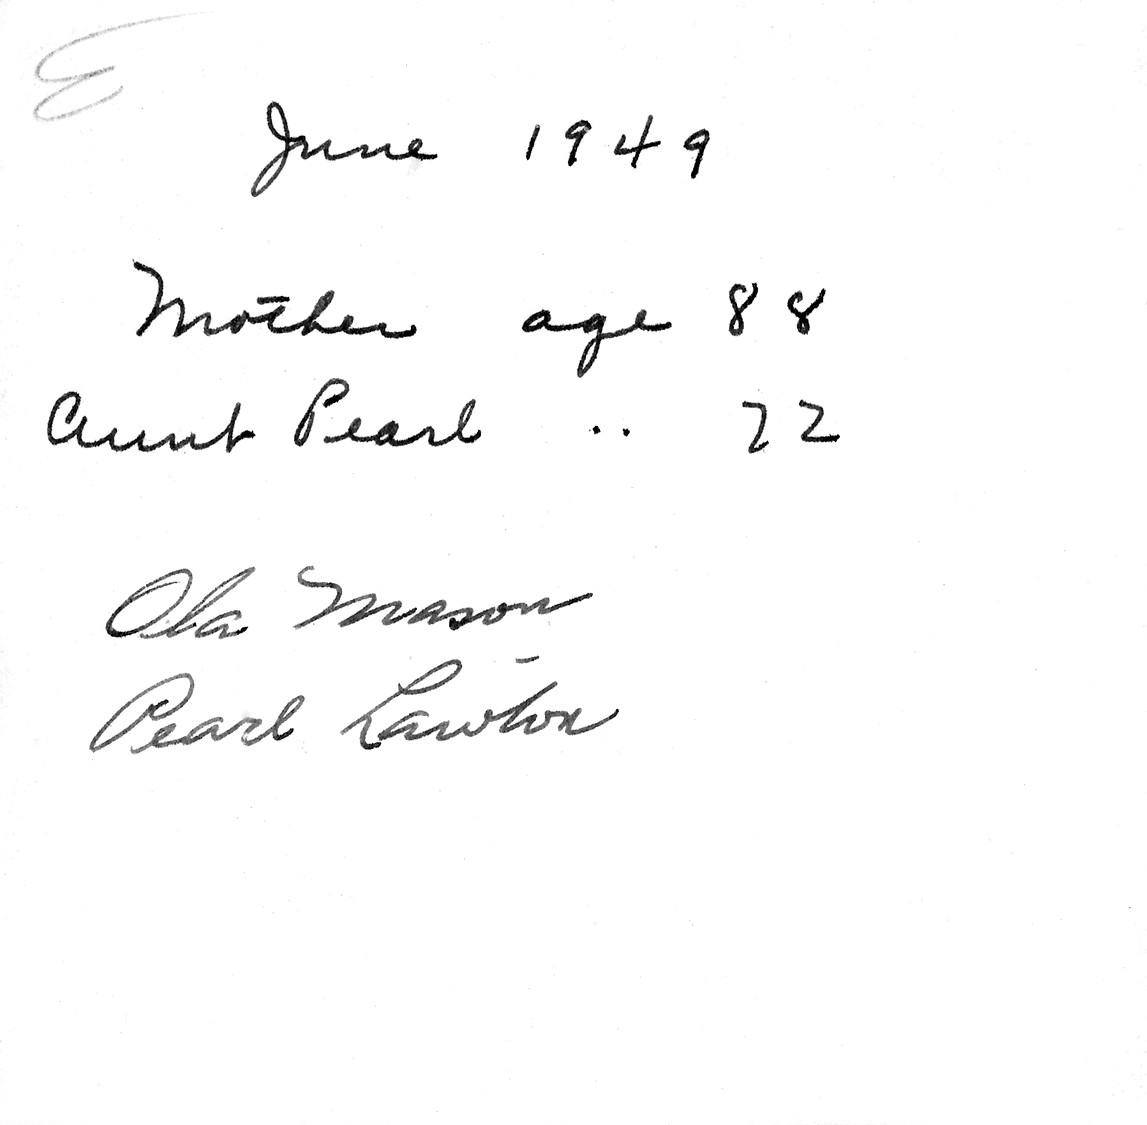 E
June 1949
Mother age 88
Aunt Pearl .. 72
Ola Mason
Pearl Lawton